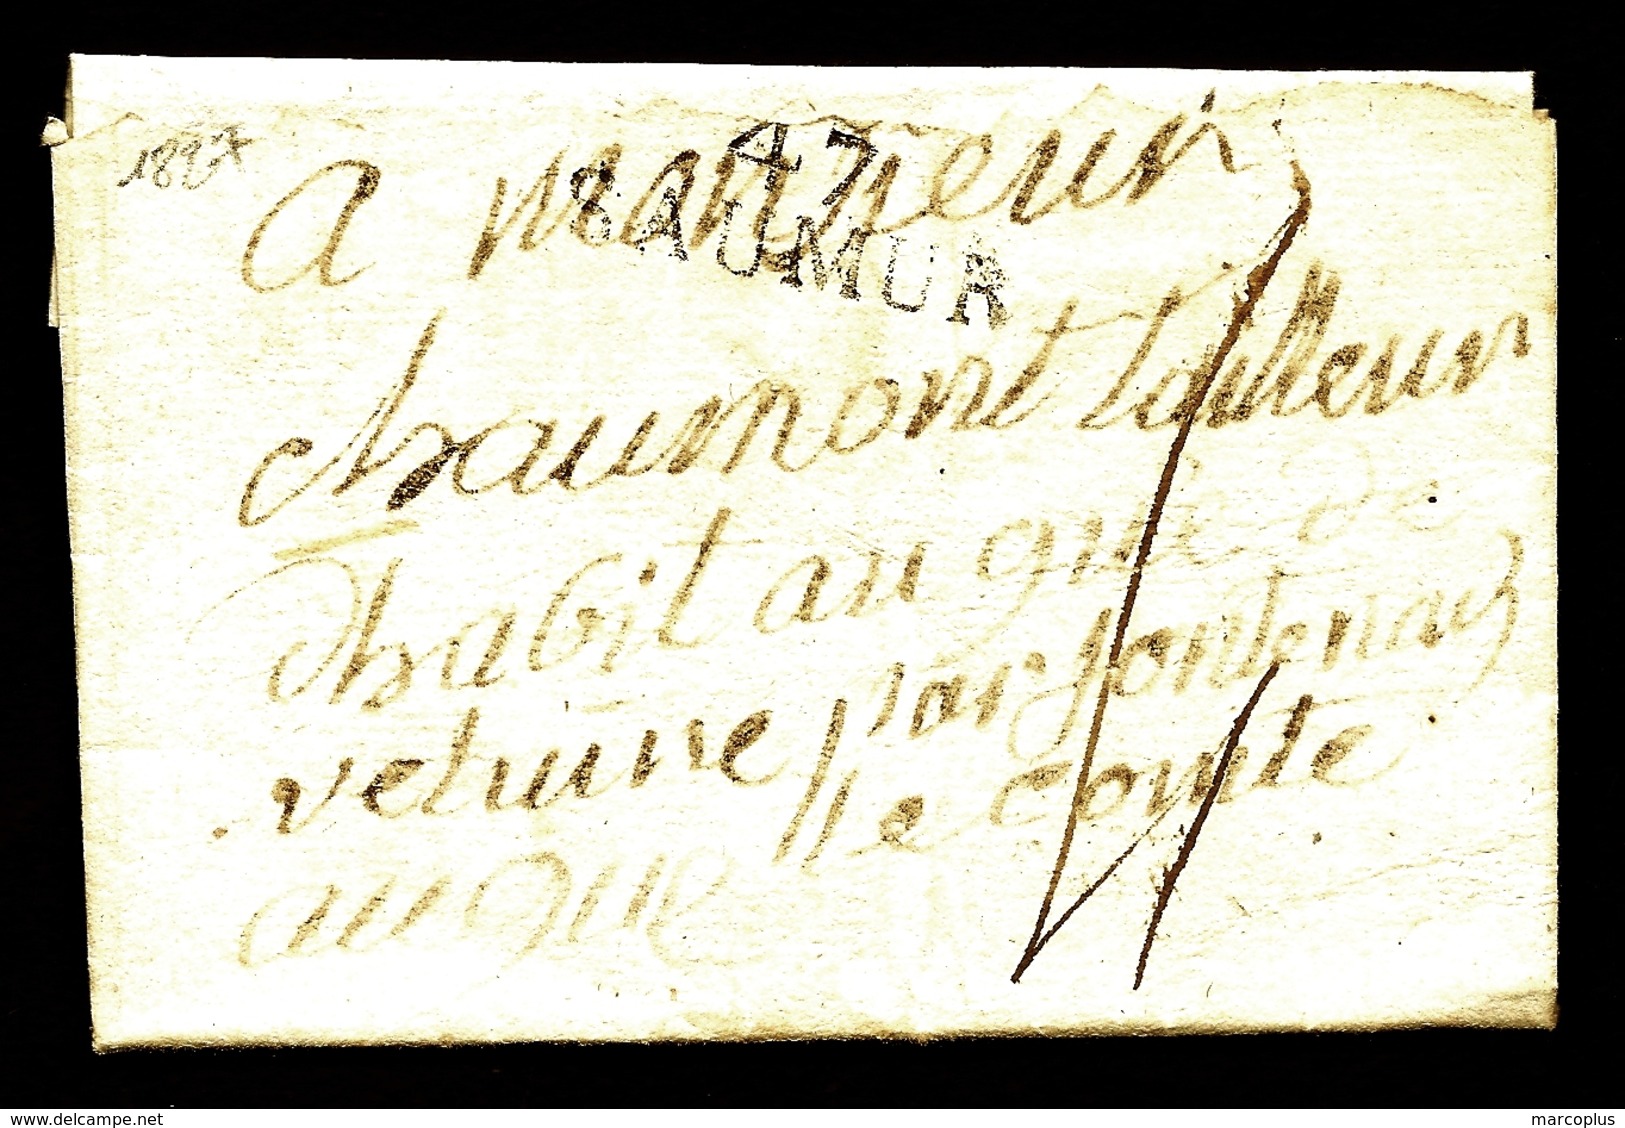 47
SAUMUR
a monsieur
chaumont tailleur
dhabit au gué de
velnine par fontenay
le comte
au gué
4
www.delcampe.net
marcoplus